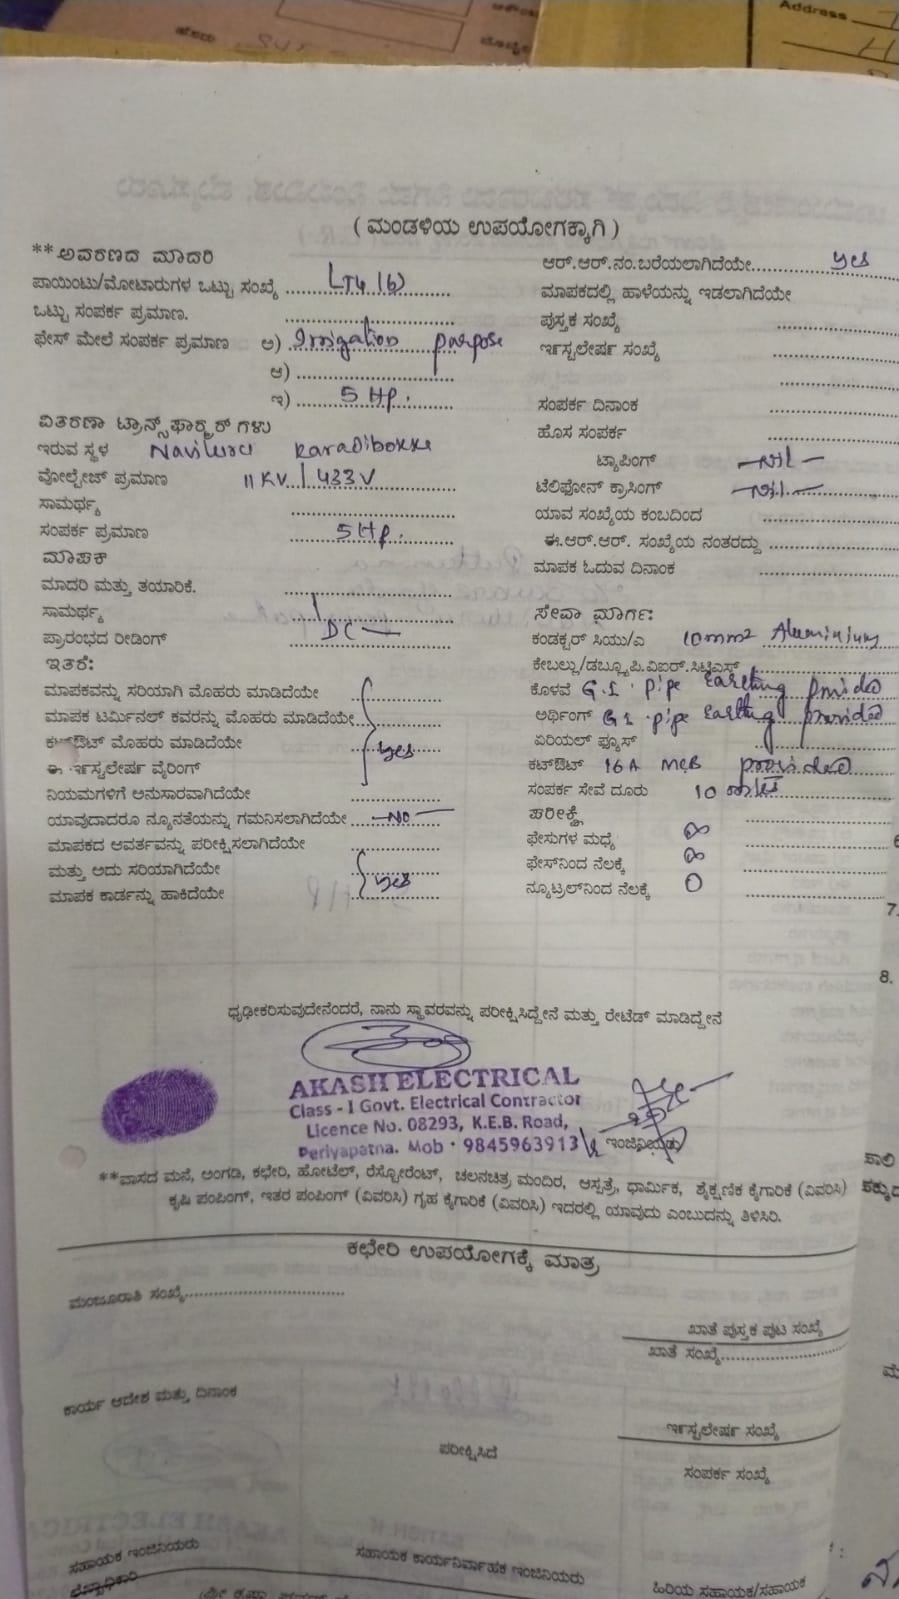 Address
( ಮಂಡಳಿಯ ಉಪಯೋಗಕ್ಕಾಗಿ )
**ಅವರಣದ ಮಾದರಿ
ಪಾಯಿಂಟು/ಮೋಟಾರುಗಳ ಒಟ್ಟು ಸಂಖ್ಯೆ ........ LT4 (6)
ಒಟ್ಟು ಸಂಪರ್ಕ ಪ್ರಮಾಣ. ........
ಫೇಸ್ ಮೇಲೆ ಸಂಪರ್ಕ ಪ್ರಮಾಣ ಅ) Irrigation purpose
ಆ) ........
ಇ) ........ 5 Hp.
ವಿತರಣಾ ಟ್ರಾನ್ಸ್‌ಫಾರ್ಮರ್ ಗಳು
ಇರುವ ಸ್ಥಳ Naviluru Karadibokke
ವೋಲ್ಟೇಜ್ ಪ್ರಮಾಣ 11 KV / 433 V
ಸಾಮರ್ಥ್ಯ ........
ಸಂಪರ್ಕ ಪ್ರಮಾಣ 5 Hp.
ಮಾಪಕ
ಮಾದರಿ ಮತ್ತು ತಯಾರಿಕೆ. ........
ಸಾಮರ್ಥ್ಯ ........
ಪ್ರಾರಂಭದ ರೀಡಿಂಗ್ DC
ಇತರೆ:
ಮಾಪಕವನ್ನು ಸರಿಯಾಗಿ ಮೊಹರು ಮಾಡಿದೆಯೇ
ಮಾಪಕ ಟರ್ಮಿನಲ್ ಕವರನ್ನು ಮೊಹರು ಮಾಡಿದೆಯೇ
ಕಟ್‌ಔಟ್ ಮೊಹರು ಮಾಡಿದೆಯೇ yes
ಈ ಇನ್‌ಸ್ಟಲೇಷನ್ ವೈರಿಂಗ್
ನಿಯಮಗಳಿಗೆ ಅನುಸಾರವಾಗಿದೆಯೇ ........
ಯಾವುದಾದರೂ ನ್ಯೂನತೆಯನ್ನು ಗಮನಿಸಲಾಗಿದೆಯೇ No
ಮಾಪಕದ ಆವರ್ತವನ್ನು ಪರೀಕ್ಷಿಸಲಾಗಿದೆಯೇ
ಮತ್ತು ಅದು ಸರಿಯಾಗಿದೆಯೇ yes
ಮಾಪಕ ಕಾರ್ಡನ್ನು ಹಾಕಿದೆಯೇ
ಆರ್.ಆರ್.ನಂ.ಬರೆಯಲಾಗಿದೆಯೇ........ yes
ಮಾಪಕದಲ್ಲಿ ಹಾಳೆಯನ್ನು ಇಡಲಾಗಿದೆಯೇ
ಪುಸ್ತಕ ಸಂಖ್ಯೆ ........
ಇನ್‌ಸ್ಟಲೇಷನ್ ಸಂಖ್ಯೆ ........
ಸಂಪರ್ಕ ದಿನಾಂಕ ........
ಹೊಸ ಸಂಪರ್ಕ ........
ಟ್ಯಾಪಿಂಗ್ Nil
ಟೆಲಿಫೋನ್ ಕ್ರಾಸಿಂಗ್ Nil
ಯಾವ ಸಂಖ್ಯೆಯ ಕಂಬದಿಂದ ........
ಈ.ಆರ್.ಆರ್. ಸಂಖ್ಯೆಯ ನಂತರದ್ದು ........
ಮಾಪಕ ಓದುವ ದಿನಾಂಕ ........
ಸೇವಾ ಮಾರ್ಗ:
ಕಂಡಕ್ಟರ್ ಸಿಯು/ಎ 10mm² Aluminium
ಕೇಬಲ್ಲು/ಡಬ್ಲ್ಯೂ.ಪಿ.ವಿಐಆರ್.ಸಿಟಿಎಸ್ ........
ಕೊಳವೆ G.I. pipe Earthing provided
ಅರ್ಥಿಂಗ್ G.I. pipe Earthing provided
ಏರಿಯಲ್ ಫ್ಯೂಸ್ ........
ಕಟ್‌ಔಟ್ 16A MCB provided
ಸಂಪರ್ಕ ಸೇವೆ ದೂರು 10 mts
ಪರೀಕ್ಷೆ ........
ಫೇಸುಗಳ ಮಧ್ಯೆ ∞
ಫೇಸ್‌ನಿಂದ ನೆಲಕ್ಕೆ ∞
ನ್ಯೂಟ್ರಲ್‌ನಿಂದ ನೆಲಕ್ಕೆ 0
7.
8.
ಧೃಢೀಕರಿಸುವುದೇನೆಂದರೆ, ನಾನು ಸ್ಥಾವರವನ್ನು ಪರೀಕ್ಷಿಸಿದ್ದೇನೆ ಮತ್ತು ರೇಟೆಡ್ ಮಾಡಿದ್ದೇನೆ
AKASH ELECTRICAL
Class - I Govt. Electrical Contractor
Licence No. 08293, K.E.B. Road,
Periyapatna. Mob · 9845963913
ಇಂಜಿನಿಯರು
**ವಾಸದ ಮನೆ, ಅಂಗಡಿ, ಕಛೇರಿ, ಹೋಟೆಲ್, ರೆಸ್ಟೋರೆಂಟ್, ಚಲನಚಿತ್ರ ಮಂದಿರ, ಆಸ್ಪತ್ರೆ, ಧಾರ್ಮಿಕ, ಶೈಕ್ಷಣಿಕ ಕೈಗಾರಿಕೆ (ವಿವರಿಸಿ)
ಕೃಷಿ ಪಂಪಿಂಗ್, ಇತರ ಪಂಪಿಂಗ್ (ವಿವರಿಸಿ) ಗೃಹ ಕೈಗಾರಿಕೆ (ವಿವರಿಸಿ) ಇದರಲ್ಲಿ ಯಾವುದು ಎಂಬುದನ್ನು ತಿಳಿಸಿರಿ.
ಕಛೇರಿ ಉಪಯೋಗಕ್ಕೆ ಮಾತ್ರ
ಮಂಜೂರಾತಿ ಸಂಖ್ಯೆ........
ಖಾತೆ ಪುಸ್ತಕ ಪುಟ ಸಂಖ್ಯೆ
ಖಾತೆ ಸಂಖ್ಯೆ........
ಕಾರ್ಯ ಆದೇಶ ಮತ್ತು ದಿನಾಂಕ
ಇನ್‌ಸ್ಟಲೇಷನ್ ಸಂಖ್ಯೆ
ಪರೀಕ್ಷಿಸಿದೆ
ಸಂಪರ್ಕ ಸಂಖ್ಯೆ
ಸಹಾಯಕ ಇಂಜಿನಿಯರು
ಸಹಾಯಕ ಕಾರ್ಯನಿರ್ವಾಹಕ ಇಂಜಿನಿಯರು
ಹಿರಿಯ ಸಹಾಯಕ/ಸಹಾಯಕ